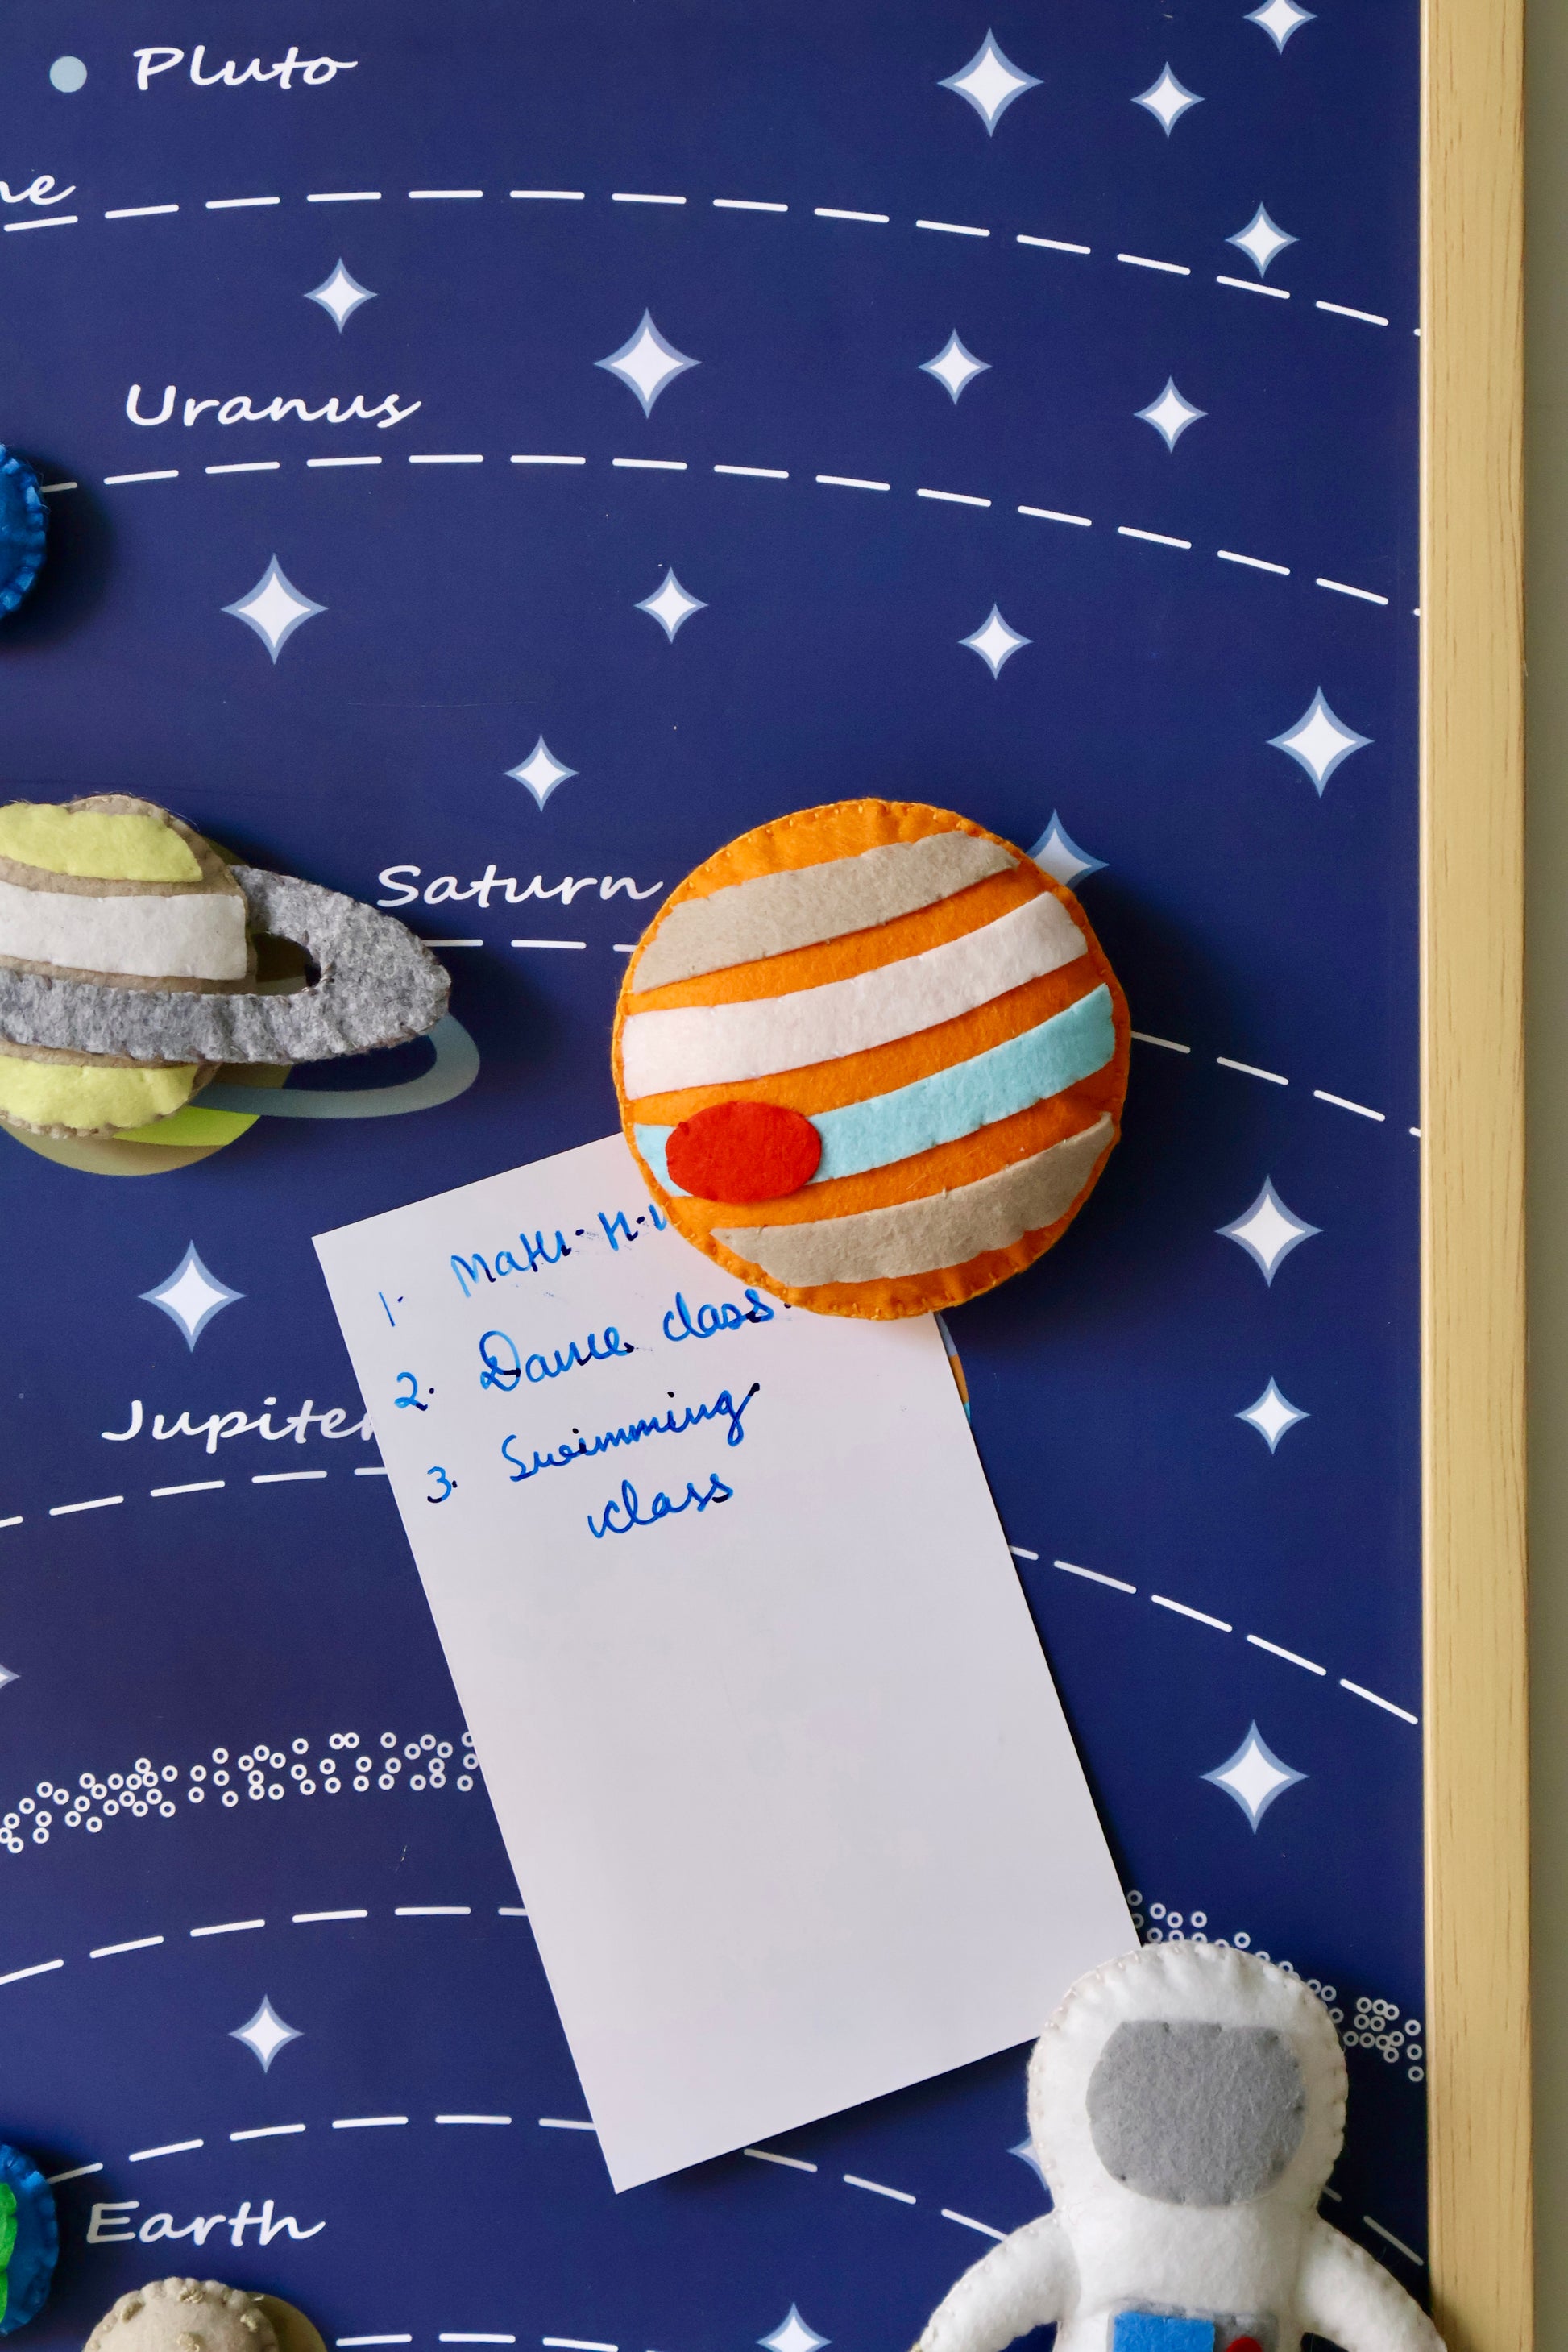 Pluto
Uranus
Saturn
1. Math. H.
2. Dance class.
3. Swimming
class
Jupiter
Earth